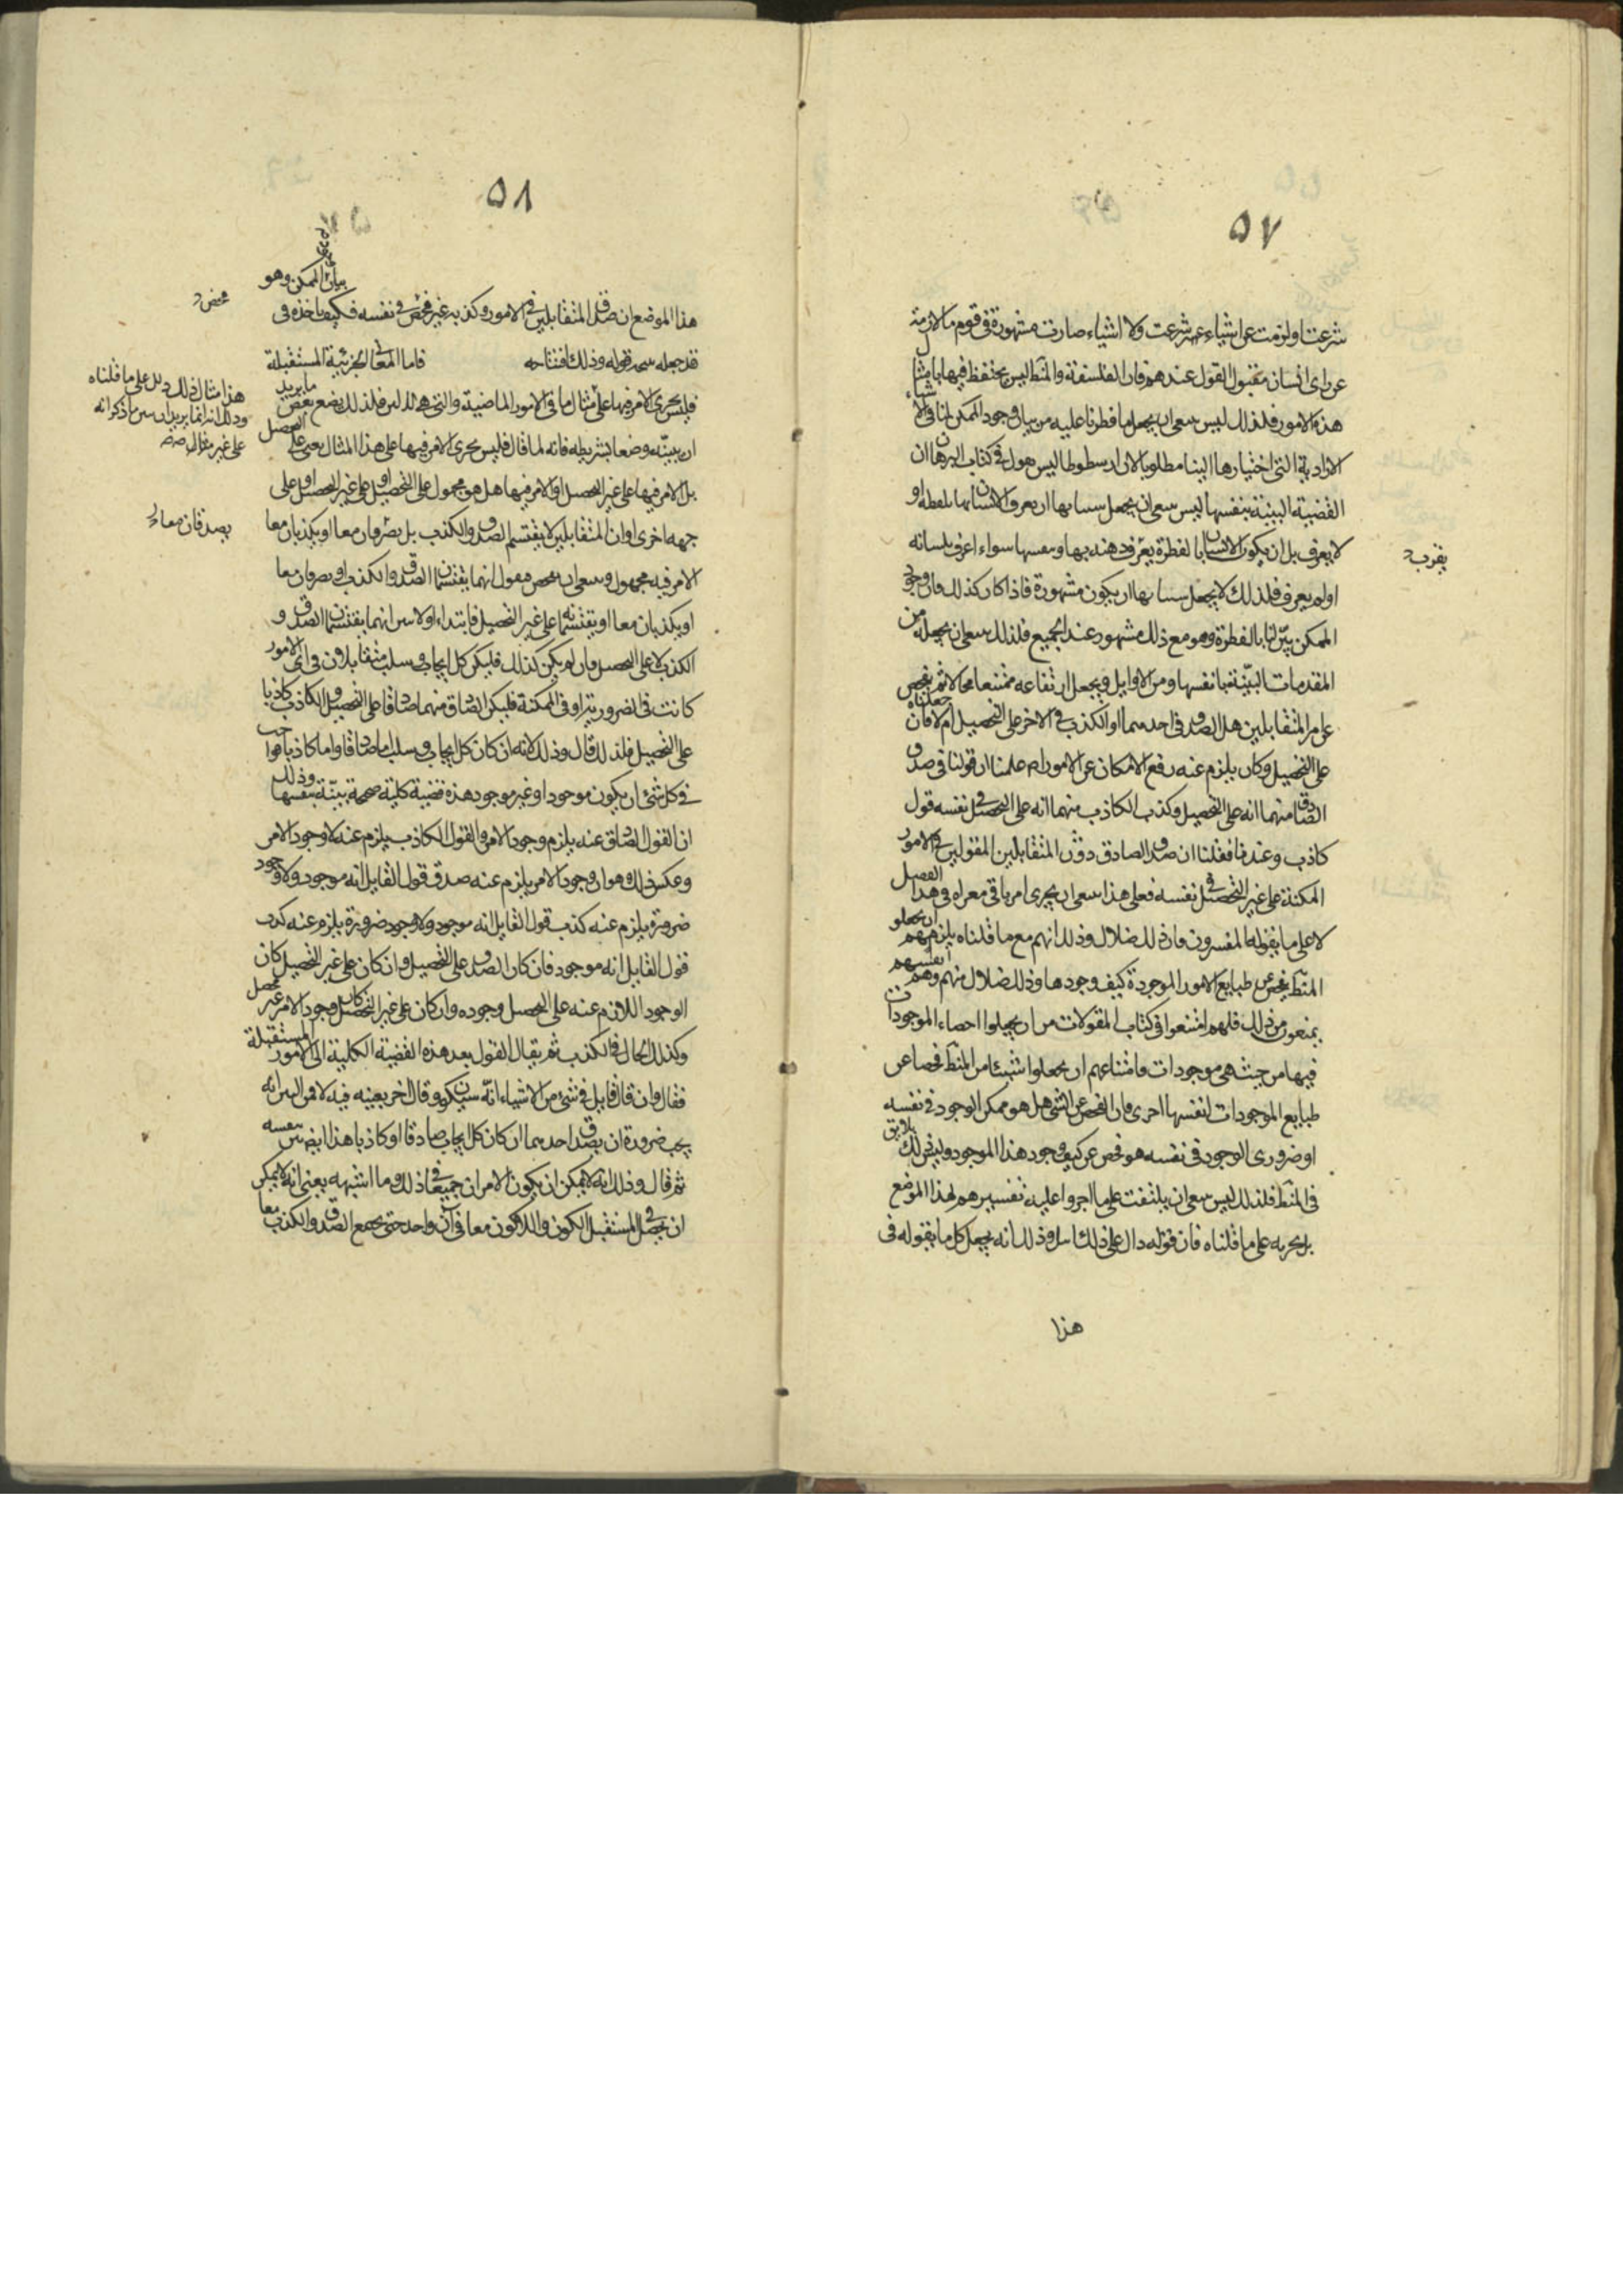 ٥٧
شرعت او لزمت عن اشياء غير شرعت ولا اشياء صارت مشهورة في قوم ما لازمة
عن راى انسان مقبول القول عندهم فان الفلسفة والمنط ليس يحتفظ فيها بامثال
هذه الامور فلذلك ليس ينبغى ان يجعل ما فطرنا عليه من بيان وجود الممكن لنا في الاشياء
الارادية التى اختيارها الينا مطلوبا لان ارسطوطاليس هو ل في كتاب البرهان ان
القضية البينة بنفسها ليس ينبغى ان يجعل بيانها ان يعرف الانسان بلفظه او
لا يعرف بل ان يكون الانسان بالفطرة يعرف ذهنه بها وبنفسها سواء اعترف بلسانه
يقربه
او لم يعرف فلذلك لا يجعل بها ان يكون مشهورة فاذا كان كذلك فان وجود
الممكن بيّن لنا بالفطرة وهو مع ذلك مشهور عند الجميع فلذلك ينبغى ان يجعله من
المقدمات البيّنة بانفسها ومن الاوايل ويجعل ارتفاعه ممتنعا محالا ثم يفحص
عن امر المتقابلين هل الصدق في احدهما او الكذب في الاخر على التحصيل ام لا فان جعلناه
على التحصيل وكان يلزم عنه رفع الامكان عن الامور علمنا ان قولنا في صدق
الصادق منهما انه على التحصيل وكذب الكاذب منهما انه على التحصيل في نفسه قول
كاذب وعندنا فقلنا ان صدق الصادق دون المتقابلين المقولين في الامور
الممكنة على غير التحصيل في نفسه فعلى هذا ينبغى ان يجرى امر باقى هذا الفصل
لا على ما يقوله المفسرون فان ذلك ضلال وذلك انهم مع ما قلناه يلزمهم ان يجعلوا
المنط يفحص عن طبايع الامور الموجودة كيف وجودها وذلك ضلال منهم وهم انفسهم
يمنعون من ذلك فانهم امتنعوا في كتاب المقولات من ان يجعلوا احصاء الموجودات
فيها من حيث هي موجودات وامتناعهم ان يجعلوا شيئا من المنط فحصا عن
طبايع الموجودات انفسها احرى فان الفحص عن الشى هل هو ممكن الوجود في نفسه
او ضرورى الوجود في نفسه هو فحص عن كيف وجود هذا الموجود وليس ذلك يلايق
في المنط فلذلك ليس ينبغى ان يلتفت على ما اجروا عليه تفسيرهم لهذا الموضع
بل نجريه على ما قلناه فان قوله دال على ذلك وذلك انه يجعل كل ما يقوله في
هذا
٥٨
بيان الممكن وهو
هذا الموضع ان صدق المتقابلين في الامور وكذبه غير فحص في نفسه فكيف ياخذه في
محض
قد جعله قوله وذلك افتتاحه فاما المعانى الجزئية المستقبلة
فليس يجرى الامر فيها على مثال ما في الامور الماضية والتى هي فلذلك يضع بعض ما يريد
هذا مثال لذلك دليل على ما قلناه
وذلك انه انما يريد ان يبين ما ذكر انه
على غير مثال
ان يبينه وضعا بشريطه فانه لما قال فليس يجرى الامر فيها على هذا المثال يعنى على التحصيل
بل الامر فيها على غير التحصيل او الامر فيها هل هو مجهول على التحصيل او على غير التحصيل او على
جهه اخرى او ان المتقابلين لا يقتسم الصدق والكذب بل يصدقان معا او يكذبان معا
يصدقان معا
الامر فيه مجهول وينبغى ان يفحص فيقول انهما يقتسمان الصدق والكذب او يصدقان معا
او يكذبان معا او يقتسمانه على غير التحصيل فابتداء اولا انهما يقتسمان الصدق و
الكذب لا على التحصيل فان لم يكن كذلك فليكن كل ايجاب وسلب متقابلان في اى الامور
كانت في الضرورية او في الممكنة فليكن الصادق منهما صادقا على التحصيل والكاذب كاذبا
على التحصيل فلذلك قال وذلك لانه ان كان كل ايجاب وسلب اما صادقا واما كاذبا فواجب
في كل شئ ان يكون موجودا او غير موجود هذه قضية كلية صحيحة بيّنة بنفسها وذلك
ان القول الصادق عنه يلزم وجود الامر والقول الكاذب يلزم عنه لا وجود الامر
وعكس ذلك وهو ان وجود الامر يلزم عنه صدق قول القايل انه موجود ولا وجود
ضرورة يلزم عنه كذب قول القايل انه موجود ولا وجود ضرورة يلزم عنه كذب
قول القايل انه موجود فان كان الصدق على التحصيل وان كان على غير التحصيل كان
الوجود اللازم عنه على التحصيل وجوده وان كان على غير التحصيل كان وجود الامر غير محصل
وكذلك الحال في الكذب ثم يقال القول بعد هذه القضية الكلية الى الامور المستقبلة
فقال وان قال قايل في شئ من الاشياء انه سيكون وقال اخر بعينه فيه لا فمن البين انه
يجب ضرورة ان يصدق احدهما ان كان كل ايجاب صادقا او كاذبا هذا ايضا بين بنفسه
ثم قال وذلك انه لا يمكن ان يكون الامران جميعا في ذلك وما اشبهه يعنى انه لا يمكن
ان يحصل في المستقبل الكون واللاكون معا في آن واحد حتى يجمع الصدق والكذب معا